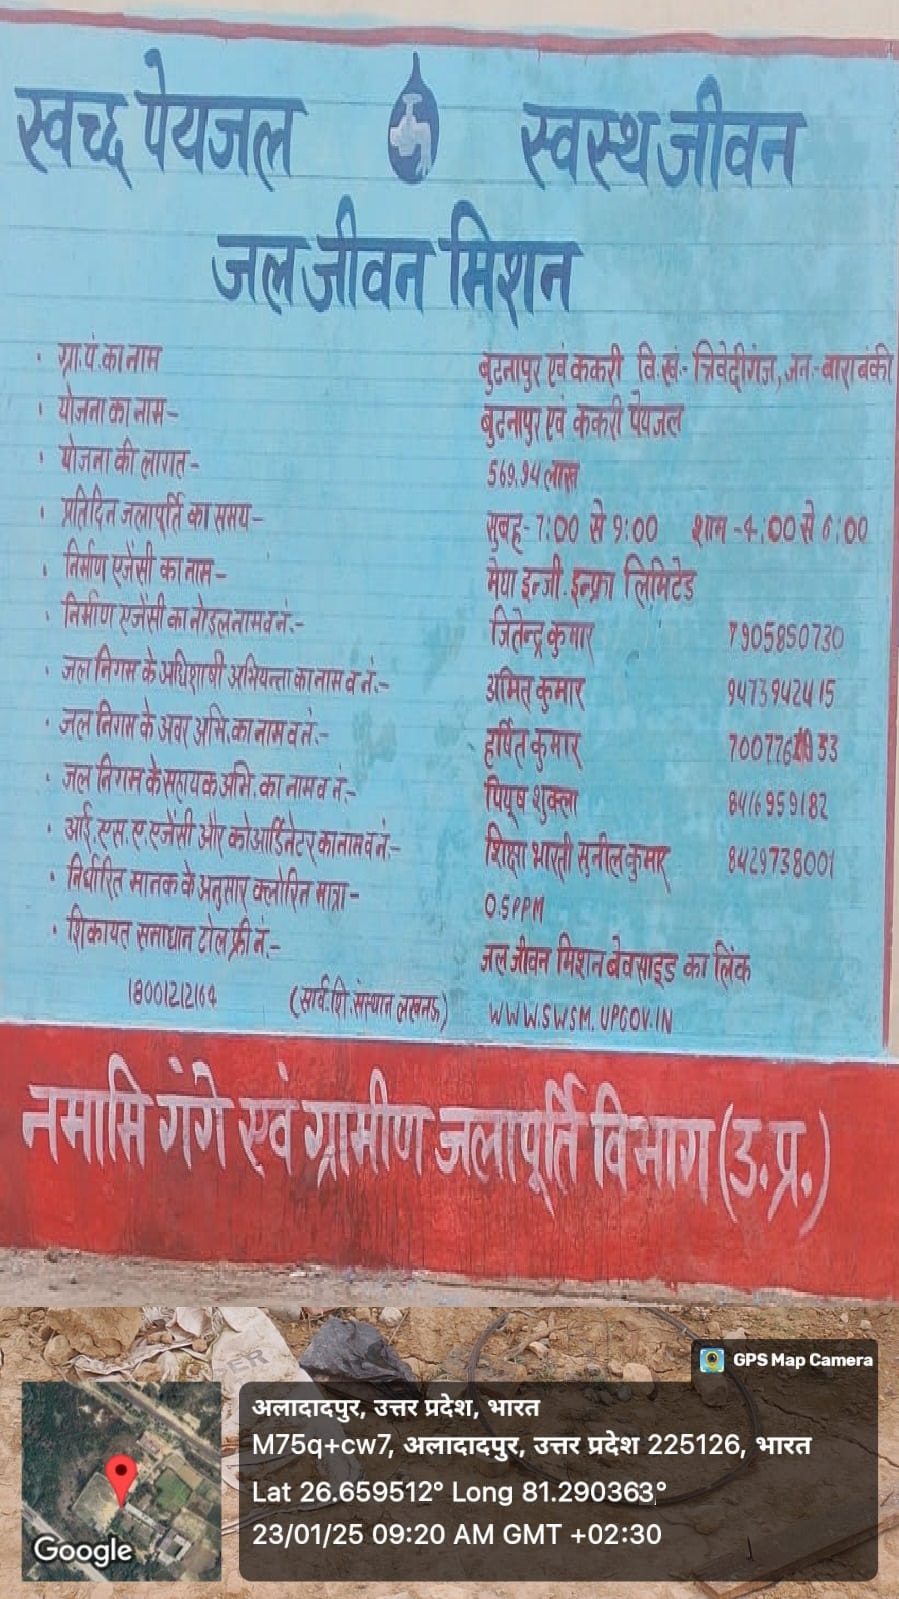 स्वच्छ पेयजल स्वस्थ जीवन
जल जीवन मिशन
· ग्रा.पं.का नाम बुढनापुर एवं ककरी वि.खं:- त्रिवेदीगंज, जन.- बाराबंकी
· योजना का नाम- बुढनापुर एवं ककरी पेयजल
· योजना की लागत- 569.94 लाख
· प्रतिदिन जलापूर्ति का समय- सुबह- 7:00 से 9:00 शाम -4:00 से 6:00
· निर्माण एजेंसी का नाम- मेघा इन्जी. इन्फ्रा लिमिटेड
· निर्माण एजेंसी का नोडल नाम व नं:- जितेन्द्र कुमार 7905850730
· जल निगम के अधिशाषी अभियन्ता का नाम व नं:- अमित कुमार 9473942415
· जल निगम के अवर अभि. का नाम व नं:- हर्षित कुमार
· जल निगम के सहायक अभि. का नाम व नं:- पियूष शुक्ला 8416959182
· आई.एस.ए एजेंसी और कोआर्डिनेटर का नाम व नं:- शिक्षा भारती सुनील कुमार 8429738001
· निर्धारित मानक के अनुसार क्लोरिन मात्रा- 0.5PPM
· शिकायत समाधान टोल फ्री नं:- जल जीवन मिशन बेवसाइड का लिंक
18001212164 (सार्व.शि.संस्थान लखनऊ) WWW.SWSM.UPGOV.IN
नमामि गंगे एवं ग्रामीण जलापूर्ति विभाग (उ.प्र.)
GPS Map Camera
अलादादपुर, उत्तर प्रदेश, भारत
M75q+cw7, अलादादपुर, उत्तर प्रदेश 225126, भारत
Lat 26.659512° Long 81.290363°
23/01/25 09:20 AM GMT +02:30
Google